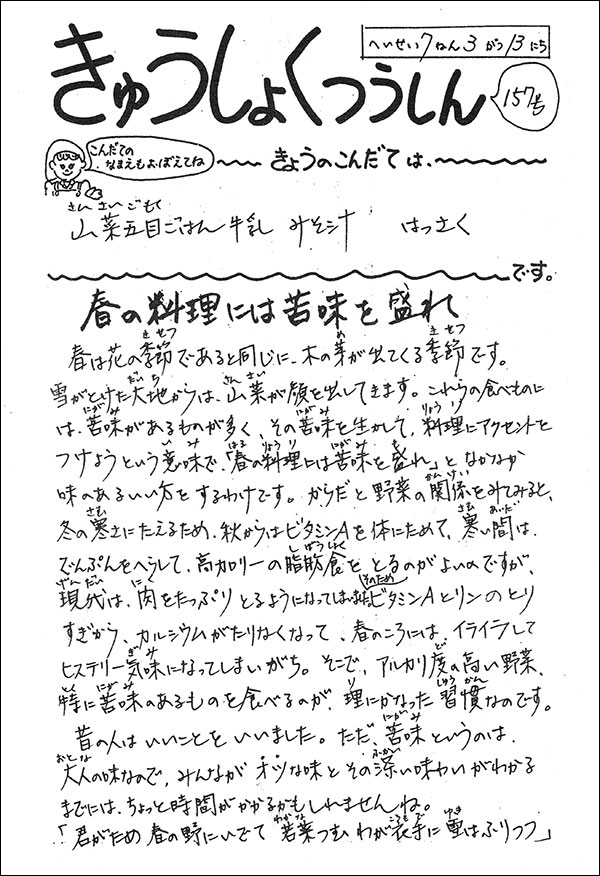 へいせい7ねん3がつ13にち
きゅうしょくつうしん
157号
こんだての
なまえもおぼえてね
きょうのこんだては、
さんさいごもく
山菜五目ごはん 牛乳 みそ汁 はっさく
です。
春の料理には苦味を盛れ
きせつ め きせつ
春は花の季節であると同じに、木の芽が出てくる季節です。
だいち さんさい
雪がとけた大地からは、山菜が顔を出してきます。これらの食べものに
にがみ にがみ りょうり
は、苦味があるものが多く、その苦味を生かして、料理にアクセントを
いみ はる りょうり にがみ も
つけようという意味で、「春の料理には苦味を盛れ」と、なかなか
かんけい
味のあるいい方をするわけです。からだと野菜の関係をみてみると、
さむ さむ あいだ
冬の寒さにたえるため、秋からはビタミンAを体にためて、寒い間は、
しぼうしょく
でんぷんをへらして、高カロリーの脂肪食をとるのがよいのですが、
げんだい にく そのため
現代は、肉をたっぷりとるようになってしまいましたビタミンAとリンのとり
すぎから、カルシウムがたりなくなって、春のころには、イライラして
ぎみ ど
ヒステリー気味になってしまいがち。そこで、アルカリ度の高い野菜、
とく にがみ り しゅうかん
特に苦味のあるものを食べるのが、理にかなった習慣なのです。
にがみ
昔の人はいいことをいいました。ただ、苦味というのは、
おとな ふかい
大人の味なので、みんながオツな味とその深い味わいがわかる
までには、ちょっと時間がかかるかもしれませんね。
わかな ころもで ゆき
「君がため 春の野にいでて 若菜つむ わが衣手に 雪はふりつつ」